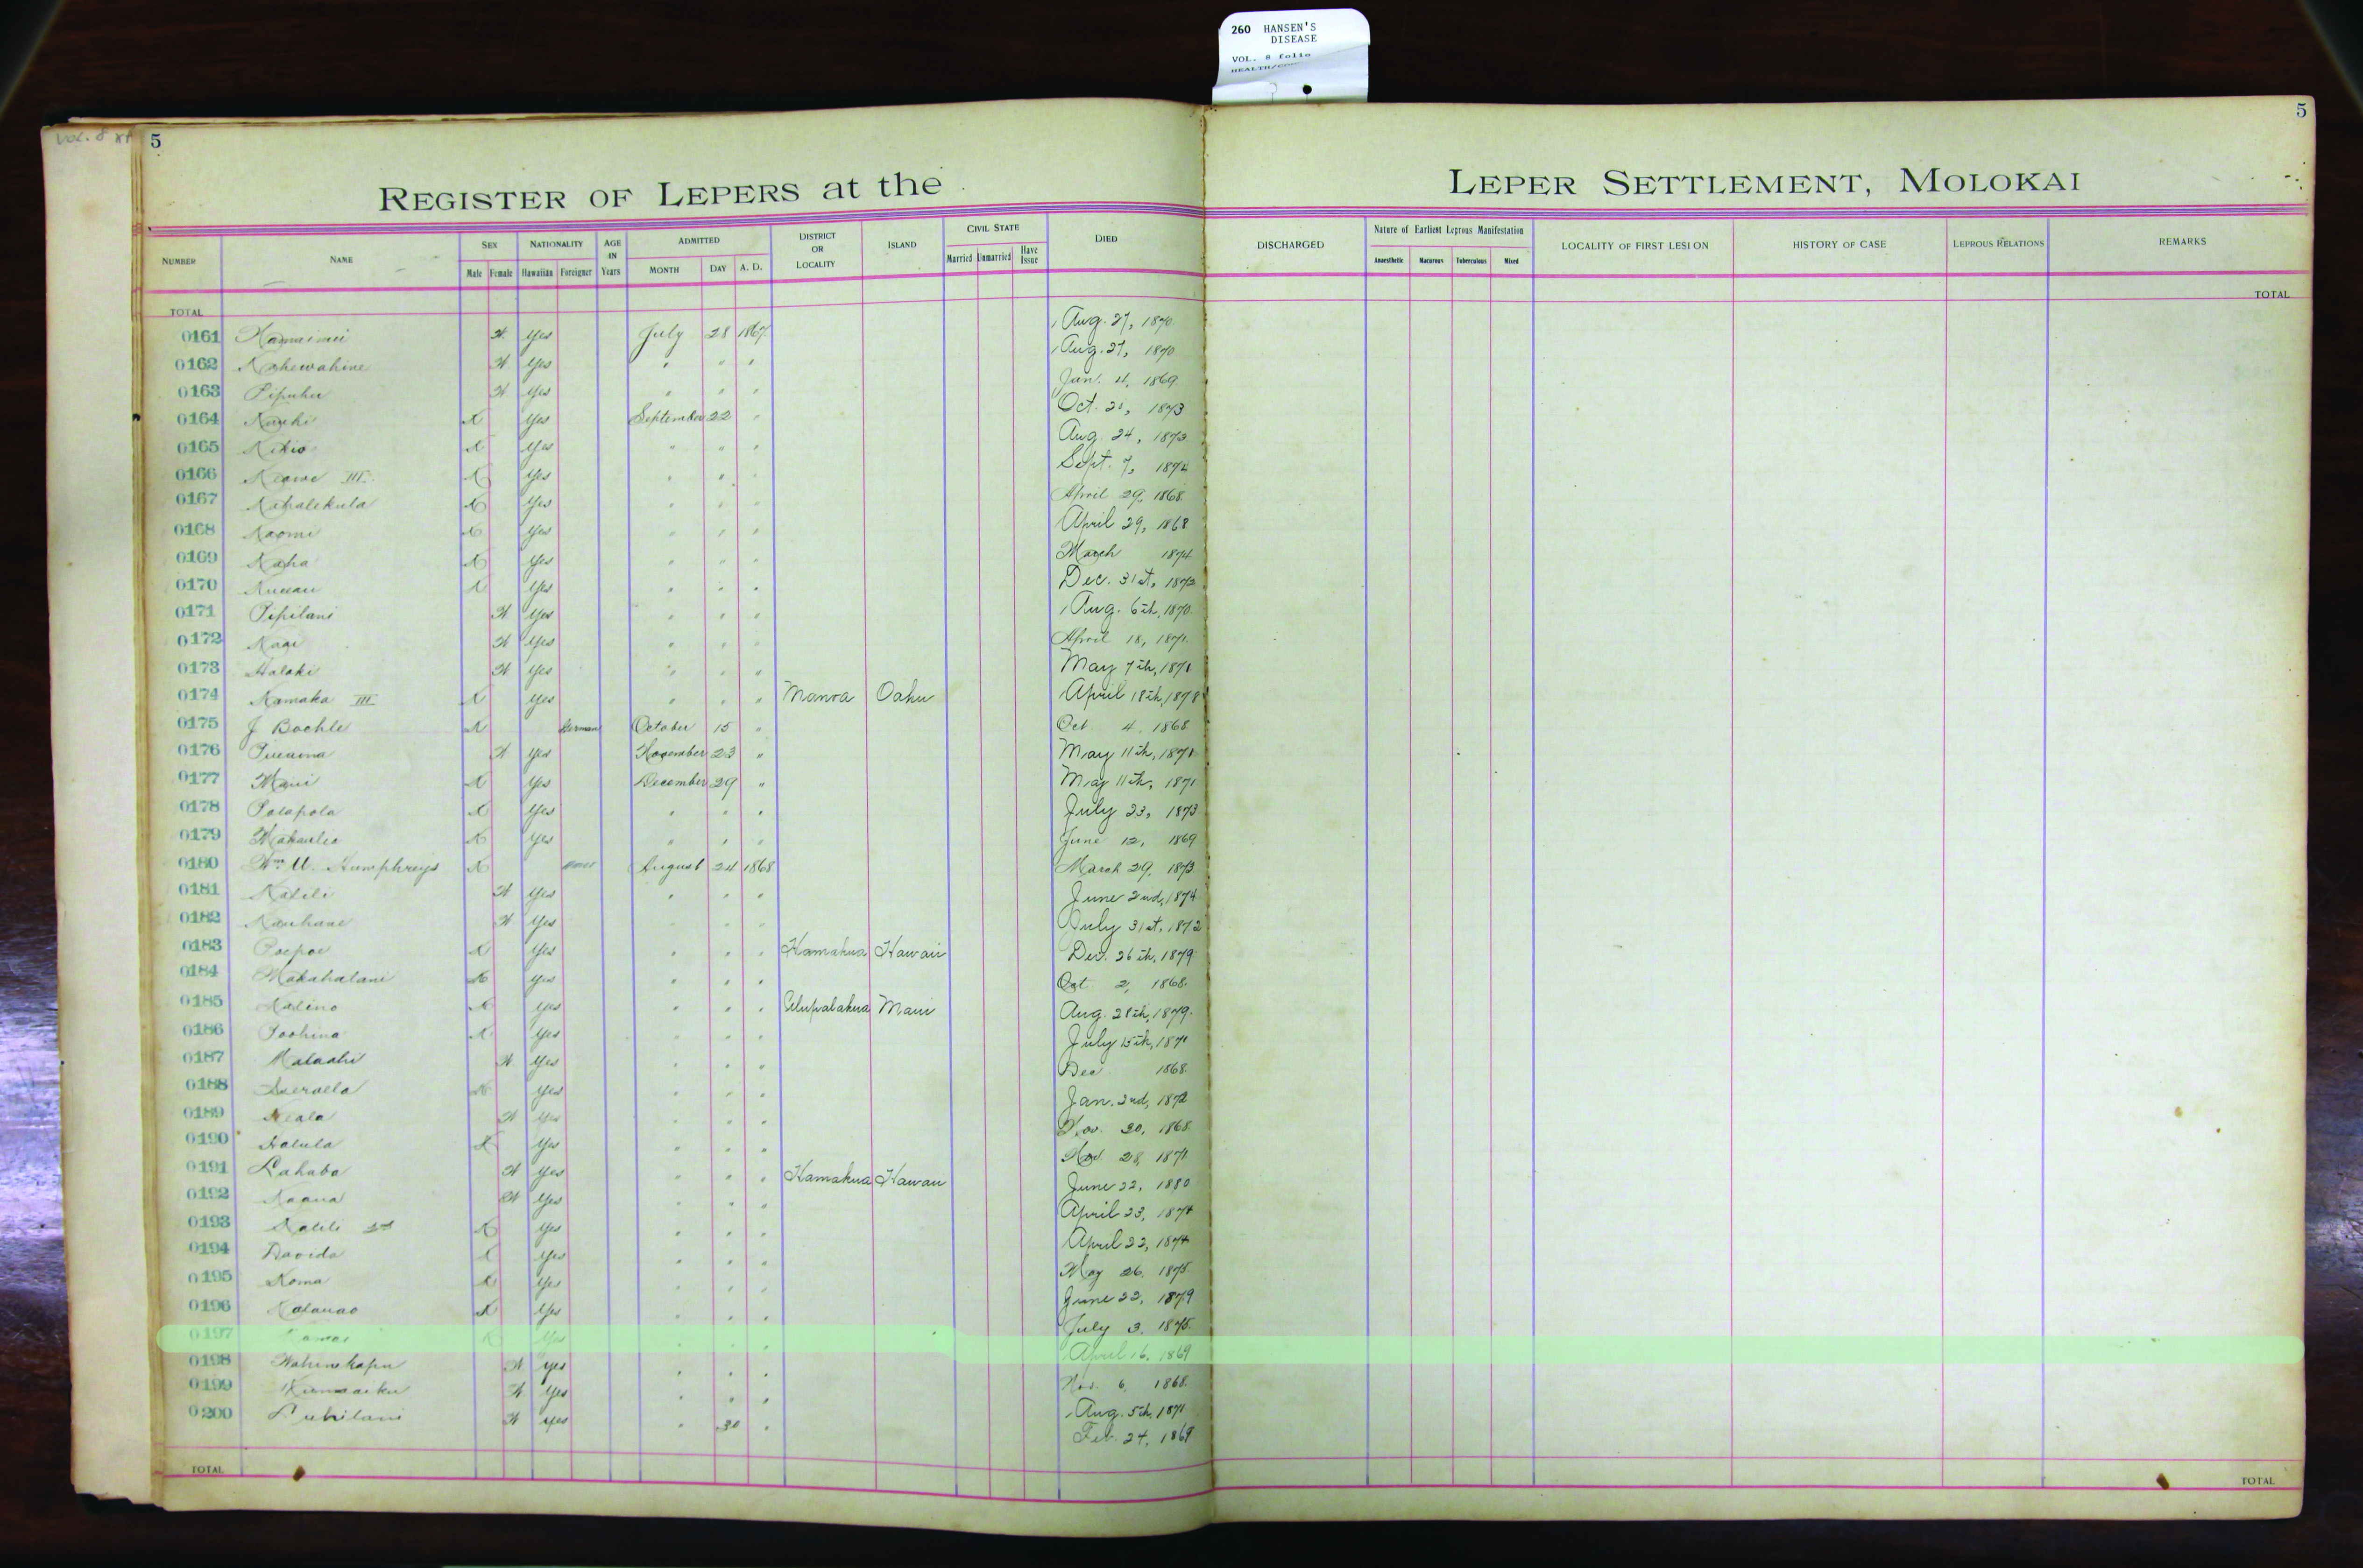 260 HANSEN'S
DISEASE
VOL. 8 folio
HEALTH/
VOL. 8
5
5
REGISTER OF LEPERS at the LEPER SETTLEMENT, MOLOKAI
NUMBER NAME SEX NATIONALITY AGE IN Years ADMITTED DISTRICT OR LOCALITY ISLAND CIVIL STATE DIED DISCHARGED Nature of Earliest Leprous Manifestation LOCALITY OF FIRST LESION HISTORY OF CASE LEPROUS RELATIONS REMARKS
Male Female Hawaiian Foreigner MONTH DAY A. D. Married Unmarried Have Issue Anaesthetic Macurous Tuberculous Mixed
TOTAL TOTAL
0161 Yes July 28 1867 Aug. 27, 1870
0162 Kahewahine Yes " " " Aug. 27, 1870
0163 Pipuhu Yes " " " Jan. 4, 1869
0164 Yes September 22 " Oct. 1873
0165 Yes " " " Aug. 24, 1873
0166 Keawe III Yes " " " Sept. 7, 1874
0167 Kahalekula Yes " " " April 29, 1868
0168 Naomi Yes " " " April 29, 1868
0169 Kaha Yes " " " March 1874
0170 Yes " " " Dec. 31st, 1873
0171 Pipilani Yes " " " Aug. 6th, 1870
0172 Yes " " " April 18, 1871
0173 Halaki Yes " " " May 7th, 1871
0174 Kamaka III Yes " " " Manoa Oahu April 18th, 1878
0175 J Bochle German October 15 " Oct 4, 1868
0176 Yes November 23 " May 11th, 1871
0177 Maui Yes December 29 " May 11th, 1871
0178 Polapola Yes " " " July 23, 1873
0179 Yes " " " June 12, 1869
0180 Wm U. Humphreys August 24 1868 March 29, 1873
0181 Kalili Yes " " " June 2nd, 1874
0182 Kauhane Yes " " " July 31st, 1872
0183 Poepoe Yes " " " Hamakua Hawaii Dec. 26th, 1879
0184 Makahalani Yes " " " Oct 2, 1868
0185 Kalino Yes " " " Ulupalakua Maui Aug. 28th, 1879
0186 Poohina Yes " " " July 15th, 1871
0187 Malaahi Yes " " " Dec 1868
0188 Yes " " " Jan. 2nd, 1872
0189 Yes " " " Nov. 30, 1868
0190 Halula Yes " " " Nov. 28, 1871
0191 Lahaba Yes " " " Hamakua Hawaii June 22, 1880
0192 Kaaua Yes " " " April 23, 1874
0193 Kalili 2nd Yes " " " April 22, 1874
0194 Davida Yes " " " May 26, 1875
0195 Koma Yes " " " June 22, 1879
0196 Kalauao Yes " " " July 3, 1875
0197 Yes " " " April 16, 1869
0198 Wahinekapu yes " " " Nov. 6, 1868
0199 Yes " " " Aug. 5th, 1871
0200 yes " 30 " Feb. 24, 1869
TOTAL TOTAL